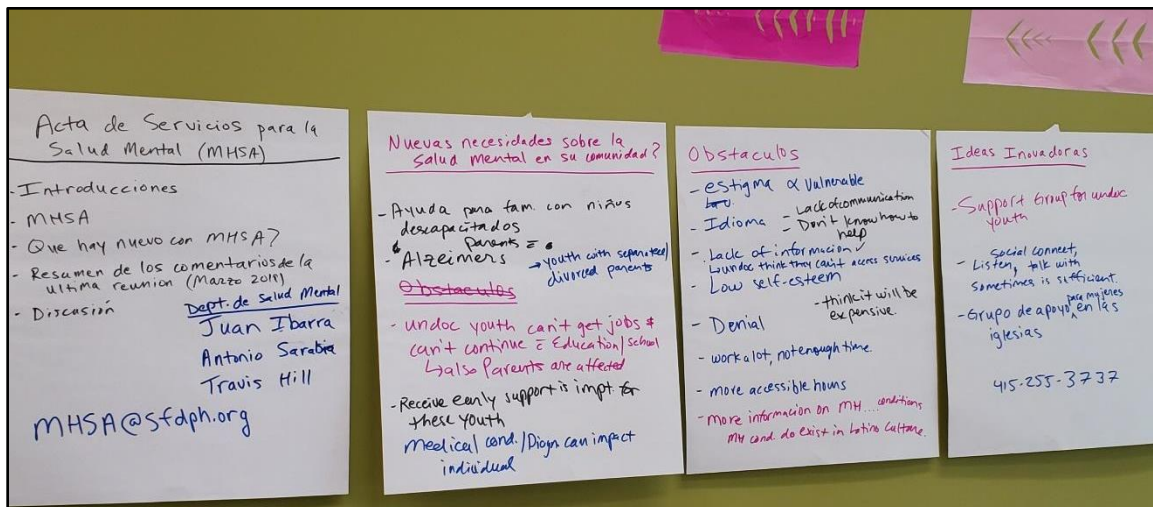 Acta de Servicios para la
Salud Mental (MHSA)
- Introducciones
- MHSA
- Que hay nuevo con MHSA?
- Resumen de los comentarios de la
ultima reunion (Marzo 2019)
- Discusión
Dept. de Salud Mental
Juan Ibarra
Antonio Sarabia
Travis Hill
MHSA@sfdph.org
Nuevas necesidades sobre la
Salud Mental en su comunidad?
- Ayuda para fam. con niños
descapacitados
parents =
- Alzeimers
→ youth with separated/
divorced parents
Obstaculos
- undoc youth can't get jobs &
can't continue = Education/school
↳ also Parents are affected
- Receive early support is impt for
these youth
Medical cond./Diagn can impact
individual
Obstaculos
- estigma & Vulnerable
- Idioma = Lack of communication
= Don't know how to
help
- Lack of informacion ✓
↳ undoc think they can't access services
- Low self-esteem
- think it will be
expensive
- Denial
- work a lot, not enough time.
- more accessible hours
- More informacion on MH.... conditions
MH cond. do exist in Latino Culture.
Ideas Inovadoras
- Support Group for undoc
youth
social connect,
- Listen, talk with
sometimes is sufficient.
- Grupo de apoyo ^ para mujeres en las
iglesias
415-255-3737